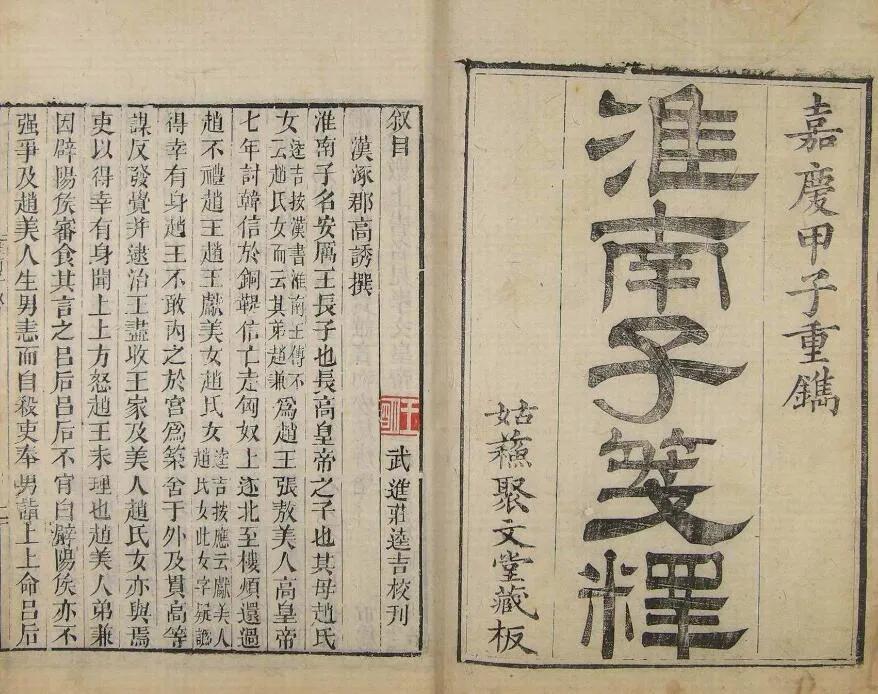 嘉慶甲子重鐫
淮南子箋釋
姑蘓聚文堂藏板
叙目　武進莊逵吉校刊
漢涿郡高誘撰
淮南子名安厲王長子也長高皇帝之子也其母趙氏
女逵吉按漢書淮南王傳不云趙氏女而云其弟趙兼為趙王張敖美人高皇帝
七年討韓信於銅鞮信亡走匈奴上遂北至樓煩還過
趙不禮趙王趙王獻美女趙氏女逵吉按應云獻美人趙氏女此女字疑譌
得幸有身趙王不敢內之於宮為築舍于外及貫高等
謀反發覺并逮治王盡收王家及美人趙氏女亦與焉
吏以得幸有身聞上上方怒趙王未理也趙美人弟兼
因辟陽侯審食其言之呂后呂后不肎白辟陽侯亦不
強爭及趙美人生男恚而自殺吏奉男詣上上命呂后